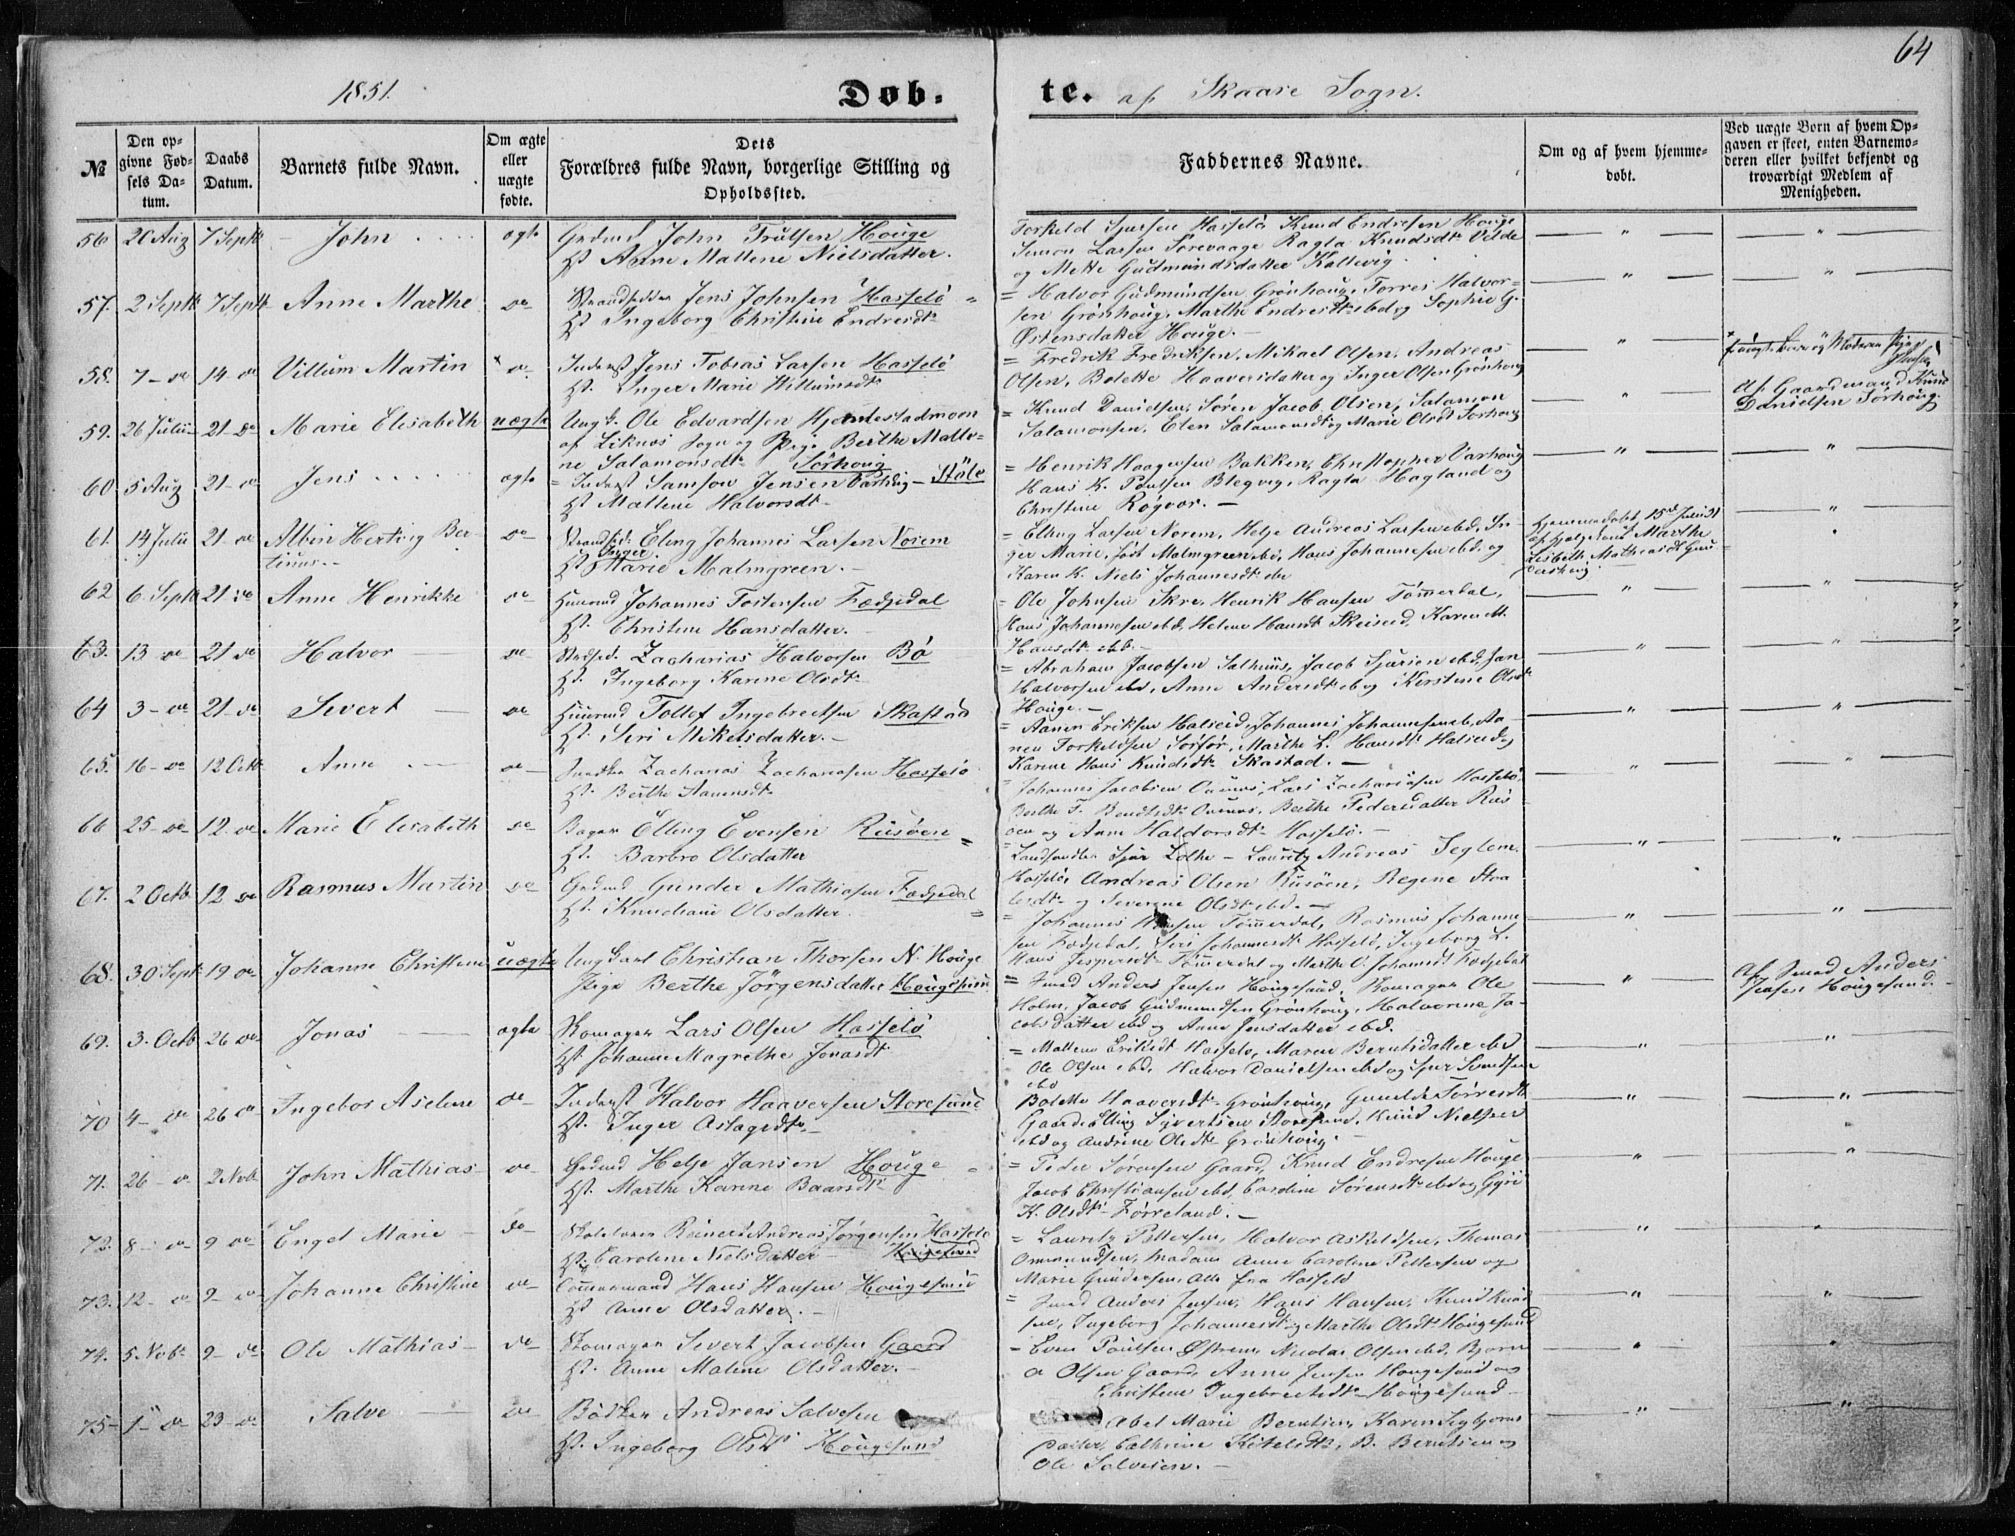 64
1851.
Døb- te. af Skaare Sogn.
№
Den op-
givne Fød-
sels Da-
tum.
Daabs
Datum.
Barnets fulde Navn.
Om ægte
eller
uægte
fødte.
Dets
Forældres fulde Navn, borgerlige Stilling og
Opholdssted.
Faddernes Navne.
Om og af hvem hjemme-
døbt.
Ved uægte Børn af hvem Op-
gaven er skeet, enten Barnemo-
deren eller hvilket bekjendt og
troværdigt Medlem af
Menigheden.
56 20 Aug 7 Septb John ægte Grdmd John Trulsen Houge
Hst Anne Mallene Nielsdatter.
Torkeld Sjursen Hasselö Knud Endresen Houge
Simon Larsen Sörevaage Ragla Knudsdt Velde
og Mette Gudmundsdatter Kallevig
57. 2 Septb 7 Septb Anne Marthe do Strandsidder Jens Johnsen Hasselö
Hst Ingeborg Christine Endresdt
Halvor Gudmundsen Grönhoug, Torres Halvor-
sen Grönhoug, Marthe Endresdt ebd og Sophie G.
Østensdatter Houge.
58. 7 do 14 do Villum Martin do Inderst Jens Tobias Larsen Hasselö
Hst. Inger Marie Willumsdt
Fredrik Fredriksen, Mikael Olsen, Andreas
Olsen, Bolette Haaversdatter og Inger Olsen Grönhoug
59. 26 Julii 21 do Marie Elisabeth uægte Ungk. Ole Edvardsen Hjemestadmoen
af Liknes Sogn og Pige Berthe Malle-
ne Salamonsdt Sörhoug
Knud Danielsen, Sören Jacob Olsen, Salamon
Salamonsen, Elen Salamonsdt og Marie Olsdt Sorhoug
Af Gaardmand Knud
Danielsen Sörhoug.
60 5 Aug 21 do Jens ægte Inderst Samson Jensen Støle
Hst Mallene Halvorsdt
Henrik Haagensen Bakken, Christopher Varhoug
Hans K. Poulsen Blegvig, Ragla Hagland og
Christine Røgvor.
61. 14 Julii 21 do Albin Herting Ber-
tinus do Strandsid. Eling Johannes Larsen Norem
Hst Inger Marie Malmgreen.
Elling Larsen Norem, Helje Andreas Larsen ebd, In-
ger Marie, födt Malmgreen ebd, Hans Johannesen ebd og
Karen K. Niels Johannesdt do
Hjemmedøbt 15de Julii 51
Marthe
Lisbeth Mathiasdt
62 6 Septb 21 do Anne Henrikke do Huusmd Johannes Tostensen Fædjedal
Hst. Christine Hansdatter.
Ole Johnsen Skre, Henrik Hansen Tömmerdal,
Hans Johannesen ebd, Helene Hansdt Skeiseid, Karen M.
Hansdt ebd.
63. 13 do 21 do Halvor do Zacharias Halvorsen Bö
Hst. Ingeborg Karine Olsdt
Abraham Jacobsen Salhuus, Jacob Sjursen ebd, Jan
Halvorsen ebd, Anne Andersdt eb og Kerstine Olsdt
Houge.
64 3 do 21 do Sivert do Huusmd Tollef Ingebretsen Skastad
Hst. Siri Mikelsdatter.
Aanen Eriksen Halseid, Johannes Johannesen eb, Aa-
nen Torkeldsen Sörför, Marthe L. Hansdt Halseid og
Karine Hans Knudsdt Skastad.
65. 16 do 12 Octb Anne do Zacharias Zachariasen Hasselö
Hst. Berthe
Johannes Jacobsen, Lars Zachariasen Hasselö,
Berthe T. Bendtsdt, Berthe Pedersdatter Rus
øen og Anne Haldorsdt Hasselö.
66 25 do 12 do Marie Elisabeth do Bager Elling Evensen Rusöen
Hst. Barbro Olsdatter
Landhandler Sjur Lothe - Lauritz Andreas Seglem
Hasselö, Andreas Olsen Rusöen, Regine
og Severine Olsdt ebd.
67. 2 Octb 12 do Rasmus Martin do Grdmd Gunder Mathiasen Fædjedal
Hst. Knudiane Olsdatter
Johannes Hansen Tömmerdal, Rasmus Johanne
sen Fædjedal, Siri Johannesdt Hasselö, Ingeborg L.
Hans Jespersdt Tömmerdal og Marthe O. Johansdt Fædjedal
68. 30 Sept 19 do Johanne Christine uægte Ungkarl Christian Thorsen N. Houge
Pige Berthe Jörgensdatter Hougesund
Smed Anders Jensen Hougesund, Skomager Ole
Holm, Jacob Gudmundsen Grönhoug, Halvorine Ja-
cobsdatter ebd og Anne Jensdatter ebd.
Af Smed Anders
Jensen Hougesund.
69. 3. Octb 26 do Jonas ægte Skomager Lars Olsen Hasselö
Hst Johanne Magrethe Jonasdt
Mallene Eriksdt Hasselö, Maren Berntsdatter ebd
Ole Olsen ebd, Halvor Danielsen ebd og Sjur Simonsen
ebd
70 4 do 26 do Ingebor Aselene do Inderst Halvor Haaversen Storesund
Hst. Inger Aslagsdt
Bolette Haaversdt Grönhoug, Gunilde Torresdt
Gaard, Elling Sivertsen Storesund, Knud Nielsen
ebd og Andrine Olsdt Grönhoug
71. 26 do 2 Novb John Mathias do Grdmd Helje Jansen Houge
Hst. Marthe Karine Baarsdt
Peder Sörensen Gaard, Knud Endresen Houge
Jacob Christiansen ebd, Caroline Sörensdt ebd og Gjøri
K. Olsdt Förreland.
72. 8 do 9 do Engel Marie do Reinert Andreas Jørgensen Hasselö
Hst. Carolene Nielsdatter Hougesund
Lauritz Pettersen, Halvor Askeldsen, Thomas
Ommundsen, Madam Anne Carolene Pettersen og
Marie Gundersen, alle fra Hasselö
73. 12 do 9 do Johanne Christine do Hans Hansen Hougesund
Hst Anne Olsdatter.
Smed Anders Jensen, Hans Hansen, Knud Knud
sen, Ingeborg Johannesdt og Marthe Olsdt Hougesund
74. 5 Novb 9 do Ole Mathias do Skomager Sivert Jacobsen Gaard
Hst. Anne Malene Olsdatter.
Even Poulsen Østrem, Nicolai Olsen ebd, Bjørn
Olsen Gaard, Anne Jensen Hougesund og
Christine Ingebretsdt Hougesund
75 1 do 23 do Salve do Bödker Andreas Salvesen
Hst. Ingeborg Olsdt Hougesund
Abel Marie Berntsen, Karen Segbjorns
datter, Cathrine Ketelsdt, B. Berntsen og
Ole Salvesen.